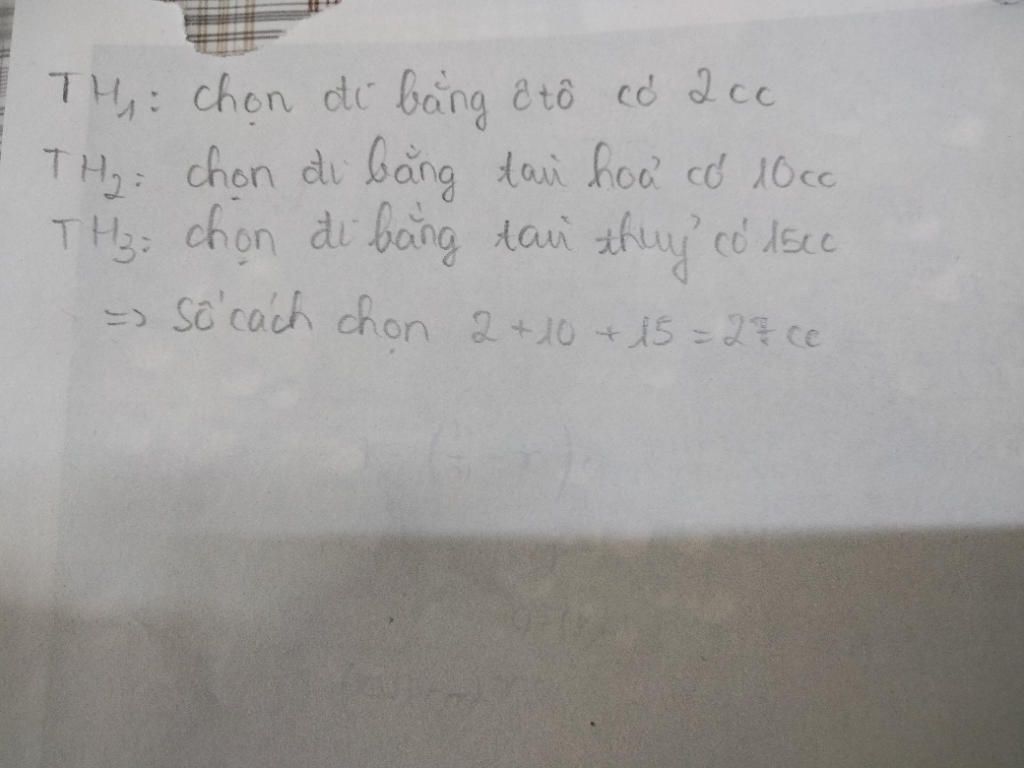 TH1: chọn đi bằng ôtô có 2cc
TH2: chọn đi bằng tàu hoả có 10cc
TH3: chọn đi bằng tàu thuỷ có 15cc
=> Số cách chọn 2 + 10 + 15 = 27 cc